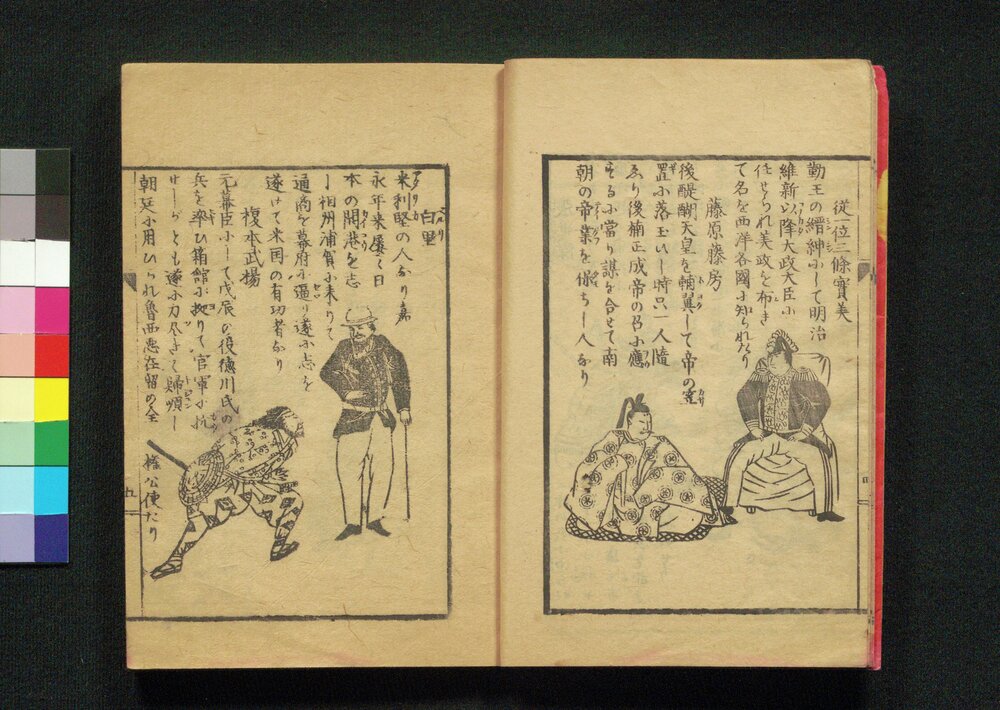 従一位三條實美
勤王の縉紳にして明治
維新以降大政大臣に
任せられ美政を布き
て名を西洋各國に知られたり
藤原藤房
後醍醐天皇を輔翼して帝の笠
置に落玉ひし時只一人隨
ゐり後楠正成帝の召に應
そるに當り謀を合せて南
朝の帝業を保ちし人なり
四
白里
米利堅の人なり嘉
永年来屢々日
本の開港を志
し相州浦賀に来りて
通商を幕府に逼り遂に志を
遂げて米国の有功者なり
榎本武揚
元幕臣にして戊辰の役徳川氏の
兵を率ひ箱館に拠りて官軍に抗
せしかども遂に刀尽きて帰順し
朝廷に用ひられ魯西亜在留の全
権公使たり
五